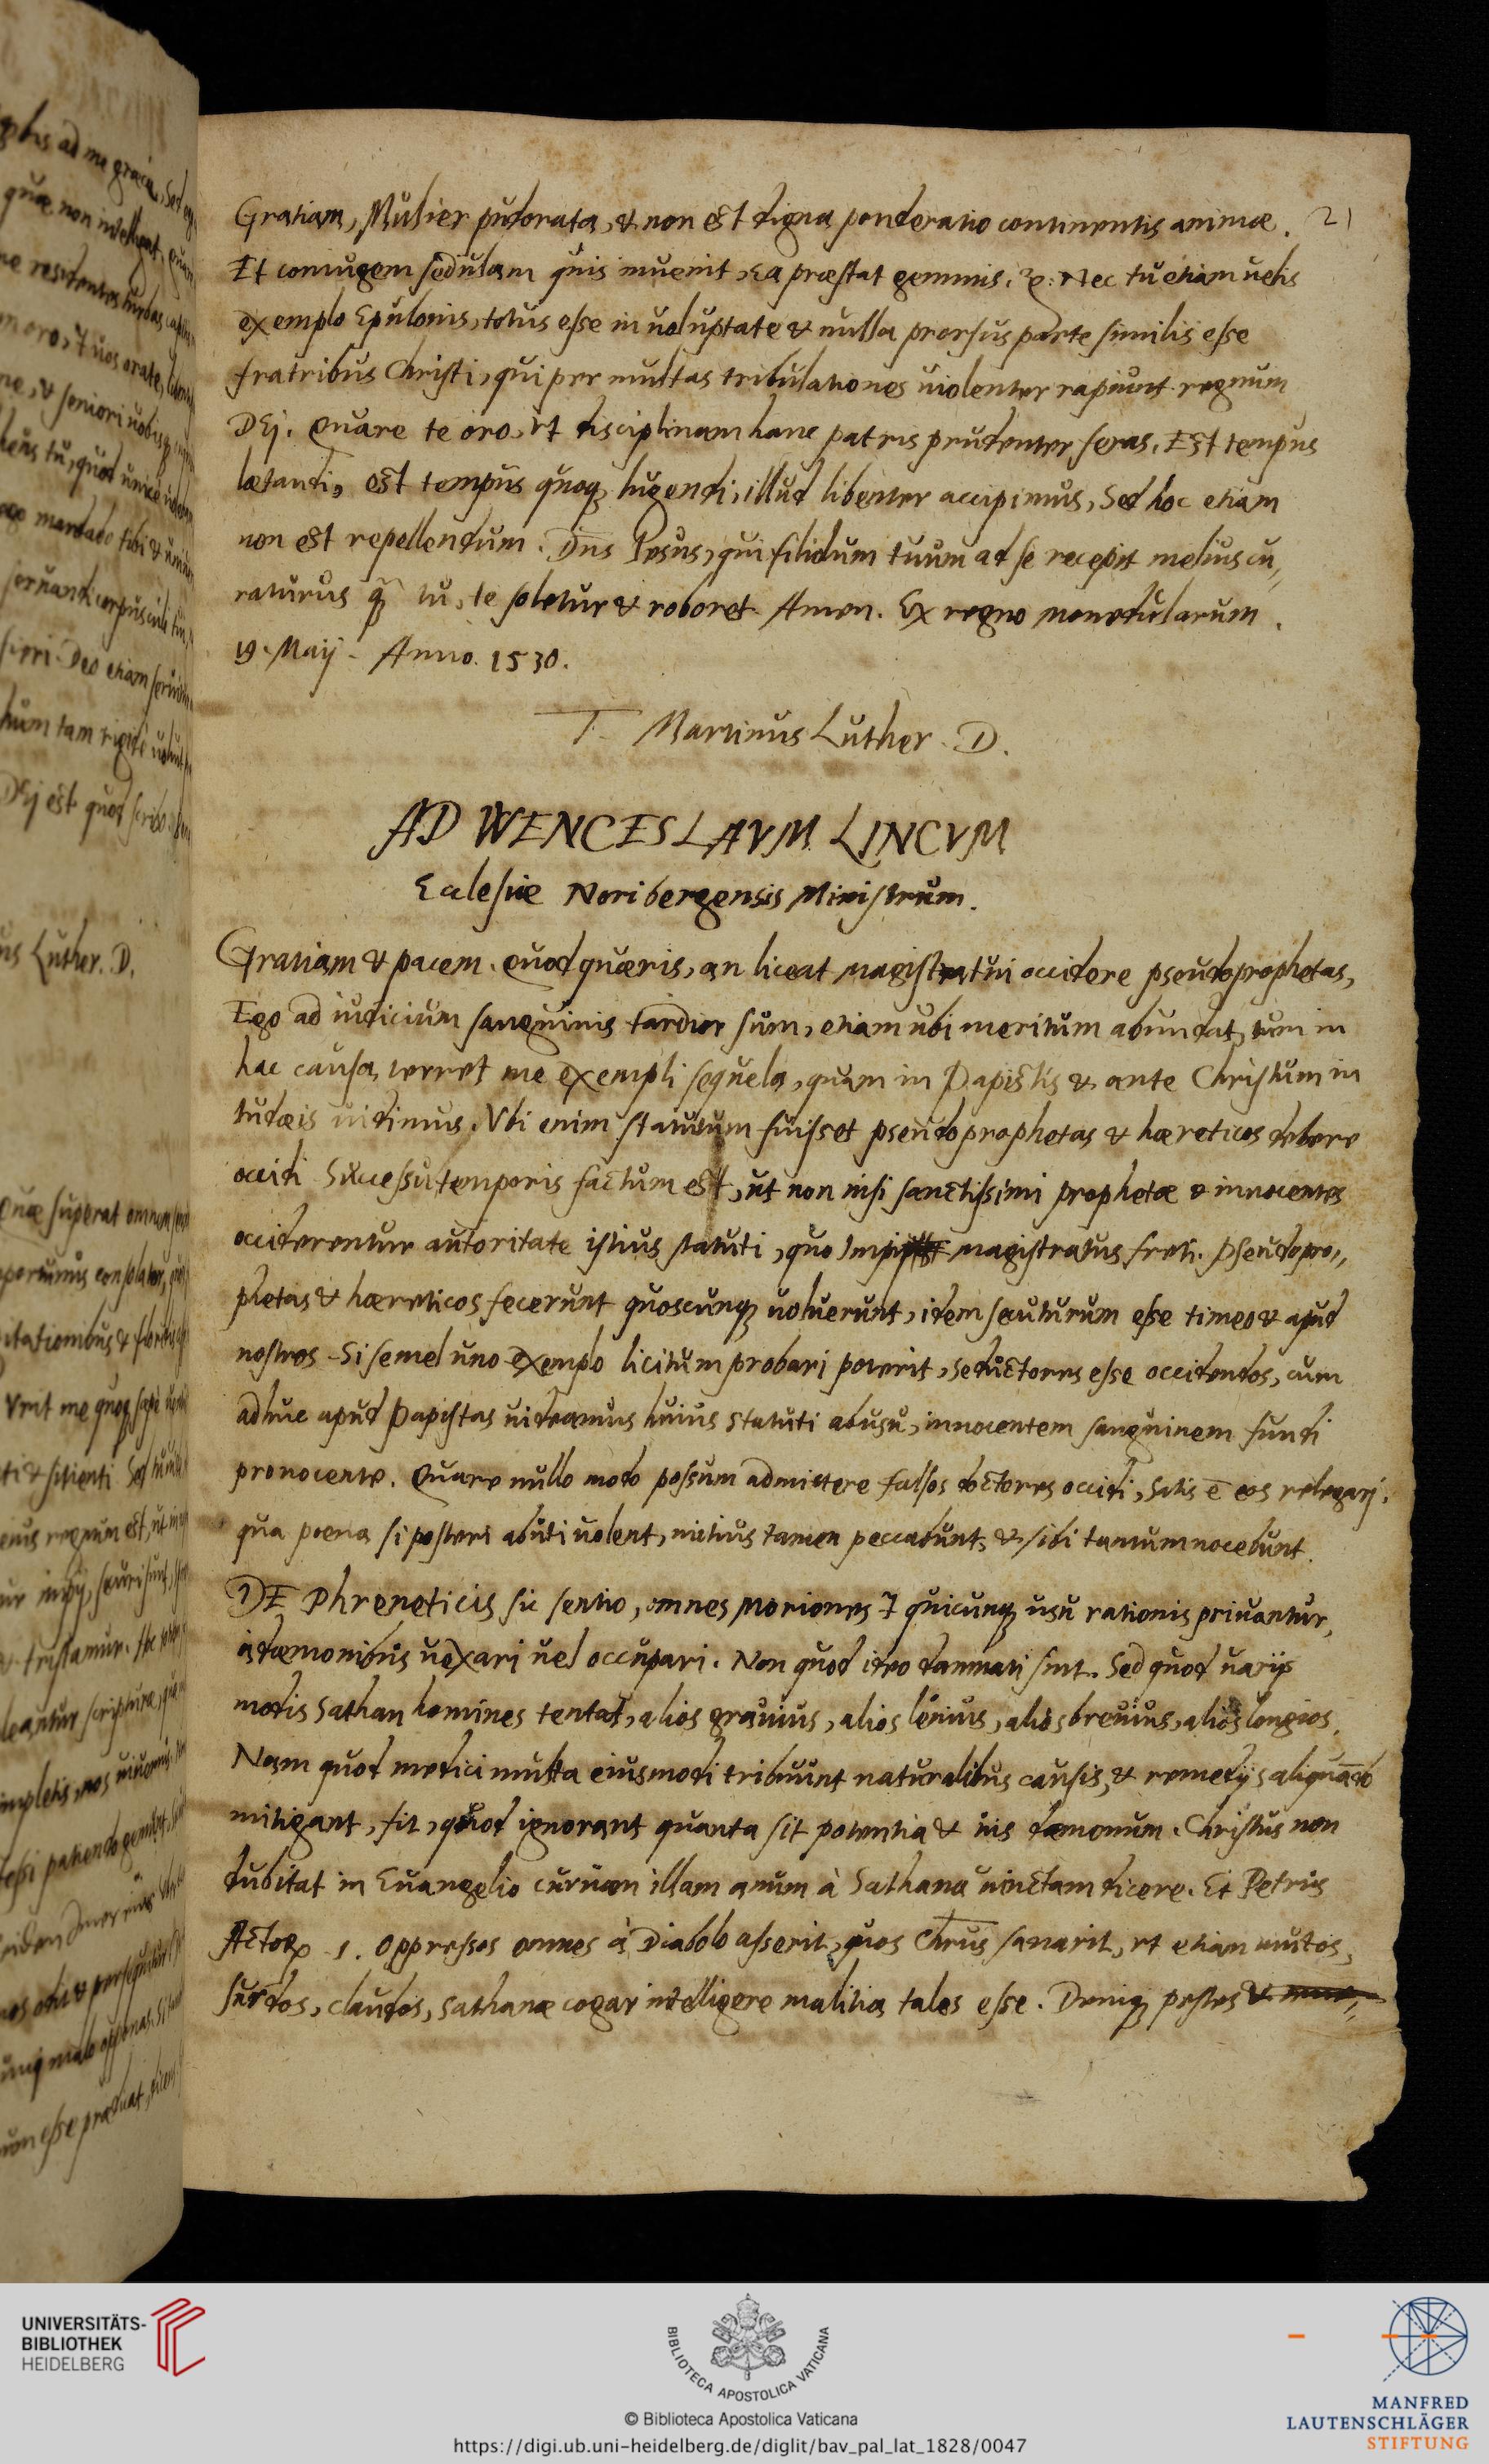 Gratiam, Mulier pudorata, & non est digna ponderatio continentis animæ. 21
Et coniugem sedulam quis inuenit, Ea præstat gemmis. &c: Nec tu etiam uelis
exemplo Epulonis, totus esse in uoluptate & nulla prorsus parte similis esse
fratribus Christi, qui per multas tribulationes uiolenter rapiunt regnum
DEj. Quare te oro, vt disciplinam hanc patris prudenter feras. Est tempus
lætandi, est tempus quoq; lugendi, illud libenter accipimus, Sed hoc etiam
non est repellendum. Dns Iesus, qui filiolum tuum ad se recepit melius cu„
raturus q̃ tu, te soletur & roboret Amen. Ex regno monedularum.
19. Maij - Anno. 1530.
T. Martinus Luther. D.
AD WENCESLAVM LINCVM
Ecclesiæ Noribergensis Ministrum.
Gratiam & pacem. Quod quæris, an liceat magistratui occidere pseudoprophetas,
Ego ad iudicium sanguinis tardior sum, etiam ubi meritum abundat, tum in
hac causa, terret me exempli sequela, quam in Papistis & ante Christum in
Iudæis uidimus. Vbi enim statutum fuisset pseudoprophetas & hæreticos debere
occidi Successu temporis factum est, ut non nisi sanctissimi prophetæ & innocentes
occiderentur autoritate istius statuti, quo Impij magistratus freti. Pseudopro„
phetas & hæreticos fecerunt quoscunq; uoluerunt, idem secuturum esse timeo & apud
nostros - Si semel uno exemplo licitum probari poterit, seductores esse occidendos, cum
adhuc apud Papistas uideamus huius statuti abusu, innocentem sanguinem fundi
pro nocente. Quare nullo modo possum admittere falsos doctores occidi, Satis ē eos relegari.
qua poena si posteri abuti uolent, mitius tamen peccabunt, & sibi tantum nocebunt.
DE Phreneticis sic sentio, omnes moriones & quicunq; usu rationis priuantur,
à dæmonibus uexari uel occupari. Non quod ideo damnati sint. Sed quod uarijs
modis Sathan homines tentat, alios grauius, alios leuius, alios breuius, alios longios,
Nam quod medici multa eiusmodi tribuunt naturalibus causis, & remedijs aliquādo
mitigant, fit, quod ignorant quanta sit potentia & uis dæmonum. Christus non
dubitat in Euangelio curuam illam anum à Sathana uinctam dicere. Et Petrus
Actor. 1. Oppressos omnes à Diabolo asserit, quos Chrus sanarit, vt etiam mutos,
surdos, claudos, Sathanæ cogar intelligere malitia tales esse. Deniq; pestes &
UNIVERSITÄTS-
BIBLIOTHEK
HEIDELBERG
BIBLIOTECA APOSTOLICA VATICANA
© Biblioteca Apostolica Vaticana
https://digi.ub.uni-heidelberg.de/diglit/bav_pal_lat_1828/0047
MANFRED
LAUTENSCHLÄGER
STIFTUNG